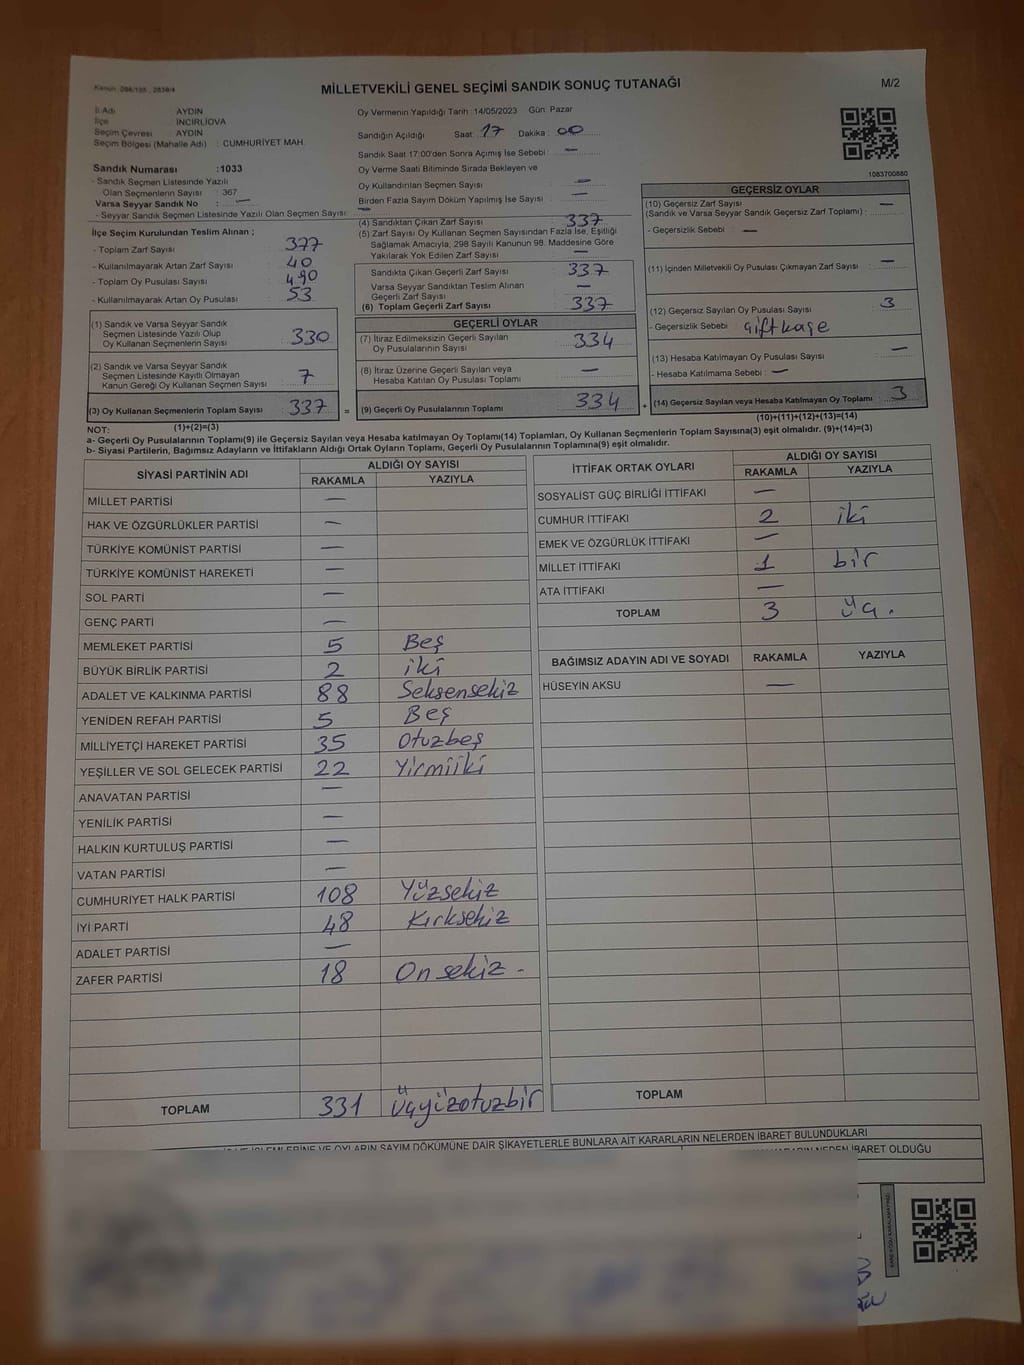 MİLLETVEKİLİ GENEL SEÇİMİ SANDIK SONUÇ TUTANAĞI
M/2
İl Adı : AYDIN
İlçe : İNCİRLİOVA
Seçim Çevresi : AYDIN
Seçim Bölgesi (Mahalle Adı) : CUMHURİYET MAH.
Sandık Numarası :1033
- Sandık Seçmen Listesinde Yazılı
Olan Seçmenlerin Sayısı : 367
Varsa Seyyar Sandık No : —
- Seyyar Sandık Seçmen Listesinde Yazılı Olan Seçmen Sayısı: —
İlçe Seçim Kurulundan Teslim Alınan ;
- Toplam Zarf Sayısı : 377
- Kullanılmayarak Artan Zarf Sayısı : 40
- Toplam Oy Pusulası Sayısı : 490
- Kullanılmayarak Artan Oy Pusulası : 53
(1) Sandık ve Varsa Seyyar Sandık
Seçmen Listesinde Yazılı Olup
Oy Kullanan Seçmenlerin Sayısı : 330
(2) Sandık ve Varsa Seyyar Sandık
Seçmen Listesinde Kayıtlı Olmayan
Kanun Gereği Oy Kullanan Seçmen Sayısı : 7
(3) Oy Kullanan Seçmenlerin Toplam Sayısı : 337
(1)+(2)=(3)
Oy Vermenin Yapıldığı Tarih :14/05/2023 Gün: Pazar
Sandığın Açıldığı Saat: 17 Dakika : 00
Sandık Saat 17:00'den Sonra Açımış İse Sebebi : —
Oy Verme Saati Bitiminde Sırada Bekleyen ve
Oy Kullandırılan Seçmen Sayısı : —
Birden Fazla Sayım Döküm Yapılmış İse Sayısı : —
(4) Sandıktan Çıkan Zarf Sayısı : 337
(5) Zarf Sayısı Oy Kullanan Seçmen Sayısından Fazla İse, Eşitliği
Sağlamak Amacıyla, 298 Sayılı Kanunun 98. Maddesine Göre
Yakılarak Yok Edilen Zarf Sayısı : —
Sandıkta Çıkan Geçerli Zarf Sayısı : 337
Varsa Seyyar Sandıktan Teslim Alınan
Geçerli Zarf Sayısı : —
(6) Toplam Geçerli Zarf Sayısı : 337
GEÇERLİ OYLAR
(7) İtiraz Edilmeksizin Geçerli Sayılan
Oy Pusulalarının Sayısı : 334
(8) İtiraz Üzerine Geçerli Sayılan veya
Hesaba Katılan Oy Pusulası Toplamı : —
= (9) Geçerli Oy Pusulalarının Toplamı : 334
1083700880
GEÇERSİZ OYLAR
(10) Geçersiz Zarf Sayısı
(Sandık ve Varsa Seyyar Sandık Geçersiz Zarf Toplamı) : —
- Geçersizlik Sebebi : —
(11) İçinden Milletvekili Oy Pusulası Çıkmayan Zarf Sayısı : —
(12) Geçersiz Sayılan Oy Pusulası Sayısı : 3
- Geçersizlik Sebebi : Çift kaşe
(13) Hesaba Katılmayan Oy Pusulası Sayısı : —
- Hesaba Katılmama Sebebi : —
+ (14) Geçersiz Sayılan veya Hesaba Katılmayan Oy Toplamı : 3
(10)+(11)+(12)+(13)=(14)
NOT:
a- Geçerli Oy Pusulalarının Toplamı(9) ile Geçersiz Sayılan veya Hesaba Katılmayan Oy Toplamı(14) Toplamları, Oy Kullanan Seçmenlerin Toplam Sayısına(3) eşit olmalıdır. (9)+(14)=(3)
b- Siyasi Partilerin, Bağımsız Adayların ve İttifakların Aldığı Ortak Oyların Toplamı, Geçerli Oy Pusulalarının Toplamına(9) eşit olmalıdır.
SİYASİ PARTİNİN ADI ALDIĞI OY SAYISI
RAKAMLA YAZIYLA
MİLLET PARTİSİ —
HAK VE ÖZGÜRLÜKLER PARTİSİ —
TÜRKİYE KOMÜNİST PARTİSİ —
TÜRKİYE KOMÜNİST HAREKETİ —
SOL PARTİ —
GENÇ PARTİ —
MEMLEKET PARTİSİ 5 Beş
BÜYÜK BİRLİK PARTİSİ 2 iki
ADALET VE KALKINMA PARTİSİ 88 Seksensekiz
YENİDEN REFAH PARTİSİ 5 Beş
MİLLİYETÇİ HAREKET PARTİSİ 35 Otuzbeş
YEŞİLLER VE SOL GELECEK PARTİSİ 22 Yirmiiki
ANAVATAN PARTİSİ —
YENİLİK PARTİSİ —
HALKIN KURTULUŞ PARTİSİ —
VATAN PARTİSİ —
CUMHURİYET HALK PARTİSİ 108 Yüzsekiz
İYİ PARTİ 48 Kırksekiz
ADALET PARTİSİ —
ZAFER PARTİSİ 18 Onsekiz -
TOPLAM 331 Üçyüzotuzbir
İTTİFAK ORTAK OYLARI ALDIĞI OY SAYISI
RAKAMLA YAZIYLA
SOSYALİST GÜÇ BİRLİĞİ İTTİFAKI —
CUMHUR İTTİFAKI 2 iki
EMEK VE ÖZGÜRLÜK İTTİFAKI —
MİLLET İTTİFAKI 1 bir
ATA İTTİFAKI —
TOPLAM 3 üç.
BAĞIMSIZ ADAYIN ADI VE SOYADI RAKAMLA YAZIYLA
HÜSEYİN AKSU —
TOPLAM
İŞLEMLERİNE VE OYLARIN SAYIM DÖKÜMÜNE DAİR ŞİKAYETLERLE BUNLARA AİT KARARLARIN NELERDEN İBARET BULUNDUKLARI
NEDEN İBARET OLDUĞU